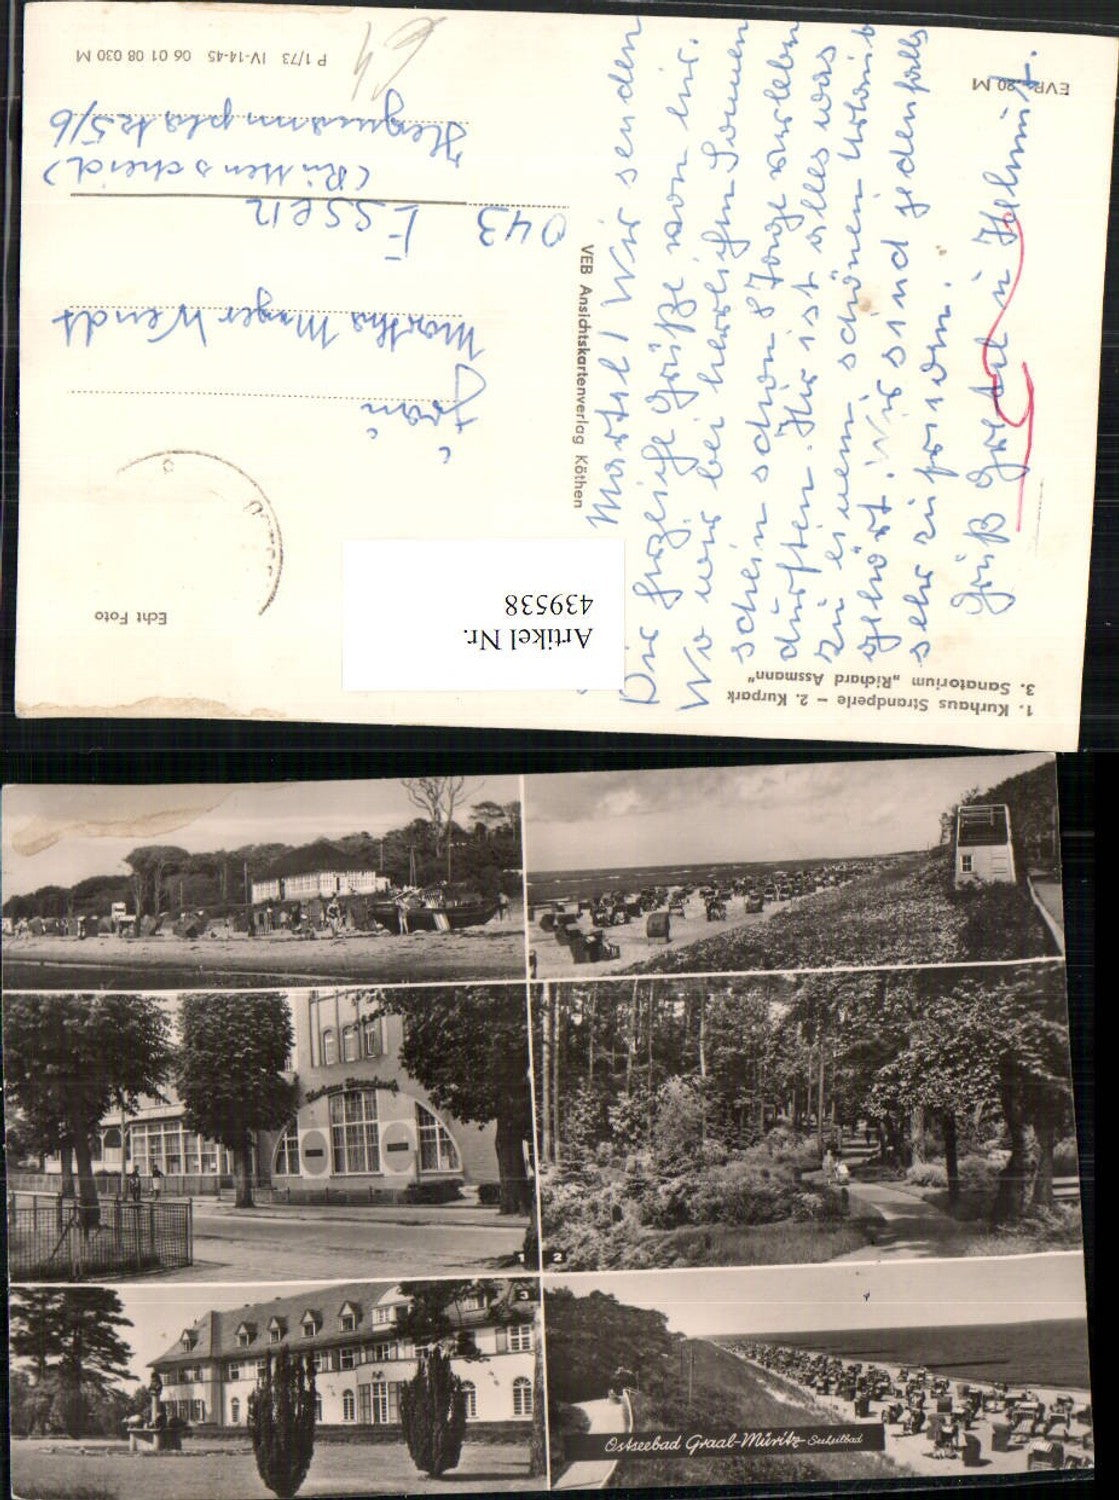 1. Kurhaus Strandperle – 2. Kurpark
3. Sanatorium „Richard Assmann"
Martel! Wir senden
Dir herzliche Grüße von hir.
Wo wir bei herrlichem Sonnen
schein schon 8 Tage verleben
durften. Hir ist alles was
zu einem schönen Urlaub
gehört. Wir sind jedenfalls
sehr zufrieden.
Gruß Gretel u Helmut.
Echt Foto
VEB Ansichtskartenverlag Köthen
Frau
Martha Mayer Wendt
043 Essen
(Rüttenscheid)
platz 5/6
P 1/73 IV-14-45 06 01 08 030 M
EVP 20 M
Artikel Nr.
439538
1
2
3
Ostseebad Graal-Müritz Seeheilbad